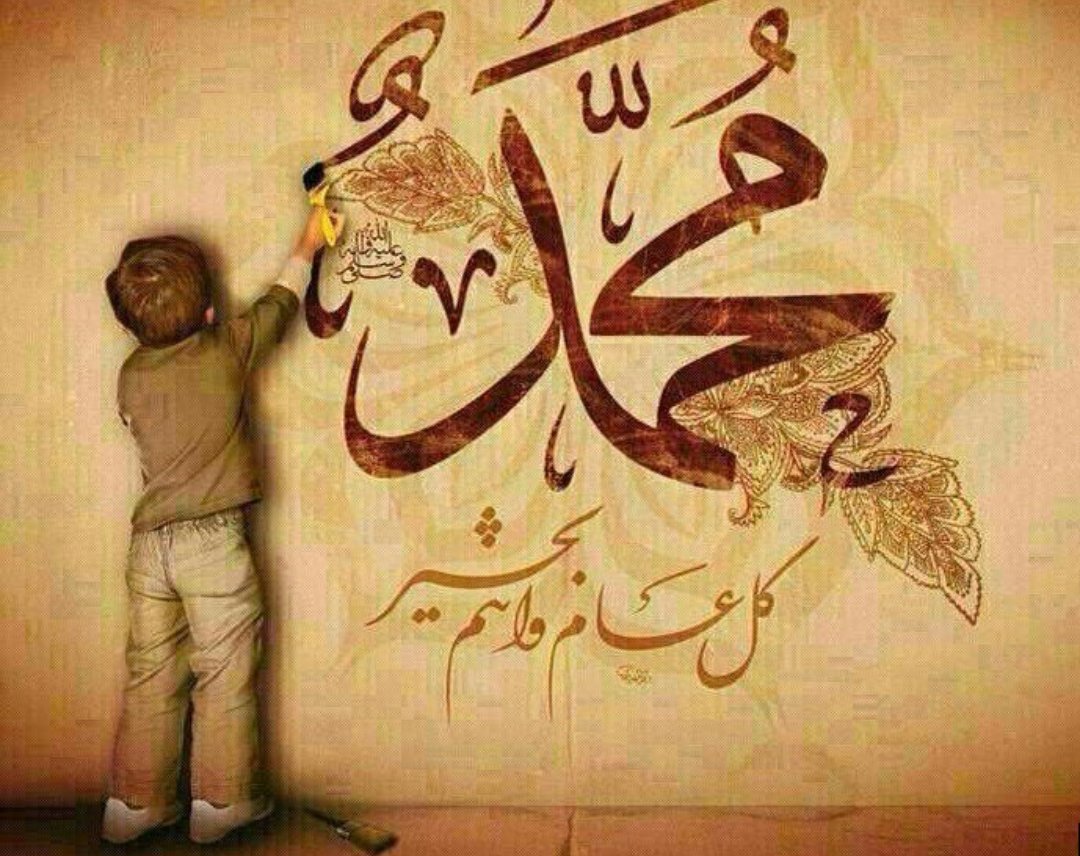 محمد
صلى الله عليه وآله وسلم
كل عام وانتم بخير